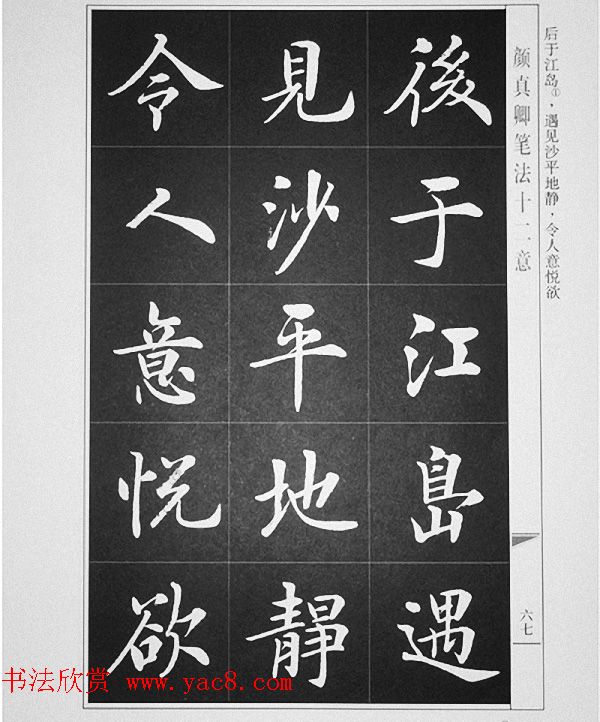 后于江岛①,遇见沙平地静,令人意悦欲
颜真卿笔法十二意
後于江島遇
見沙平地靜
令人意悦欲
六七
书法欣赏 www.yac8.com